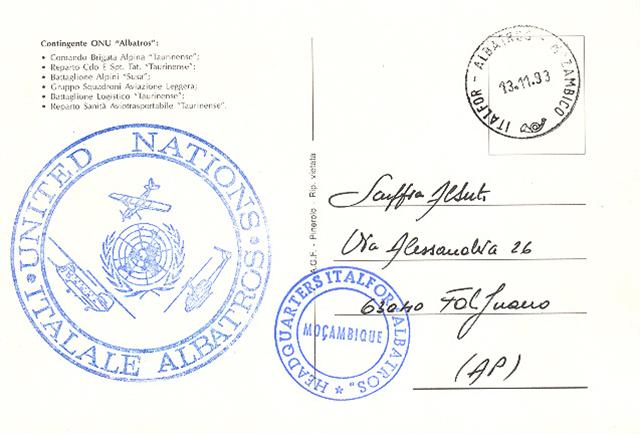 Contingente ONU "Albatros":
• Comando Brigata Alpina "Taurinense";
• Reparto Cdo E Spt. Tat. "Taurinense";
• Battaglione Alpini "Susa";
• Gruppo Squadroni Aviazione Leggera;
• Battaglione Logistico "Taurinense";
• Reparto Sanità Aviotrasportabile "Taurinense".
ITALFOR - ALBATROS - MOZAMBICO
13.11.93
UNITED NATIONS
ITALALE ALBATROS
A.G.F. - Pinerolo - Rip. vietata
Via Alessandria 26
63040 Folignano
(AP)
HEADQUARTERS ITALFOR "ALBATROS"
MOÇAMBIQUE